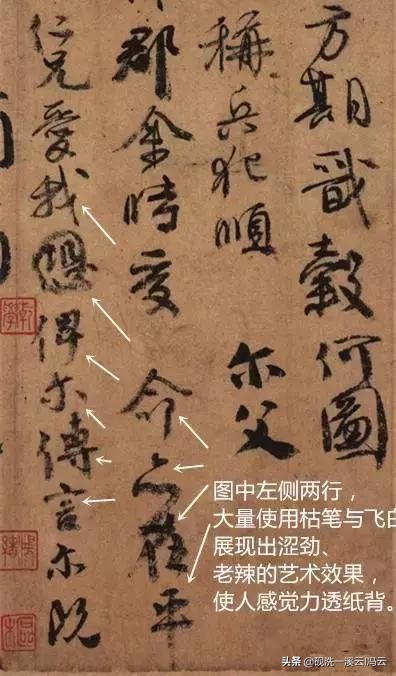 方期戩穀何圖
稱兵犯順 尒父
郡余時受命亦在平
仁兄愛我俾尒傳言尒既
图中左侧两行，
大量使用枯笔与飞白
展现出涩劲、
老辣的艺术效果，
使人感觉力透纸背。
头条 @砚洗一溪云l冯云